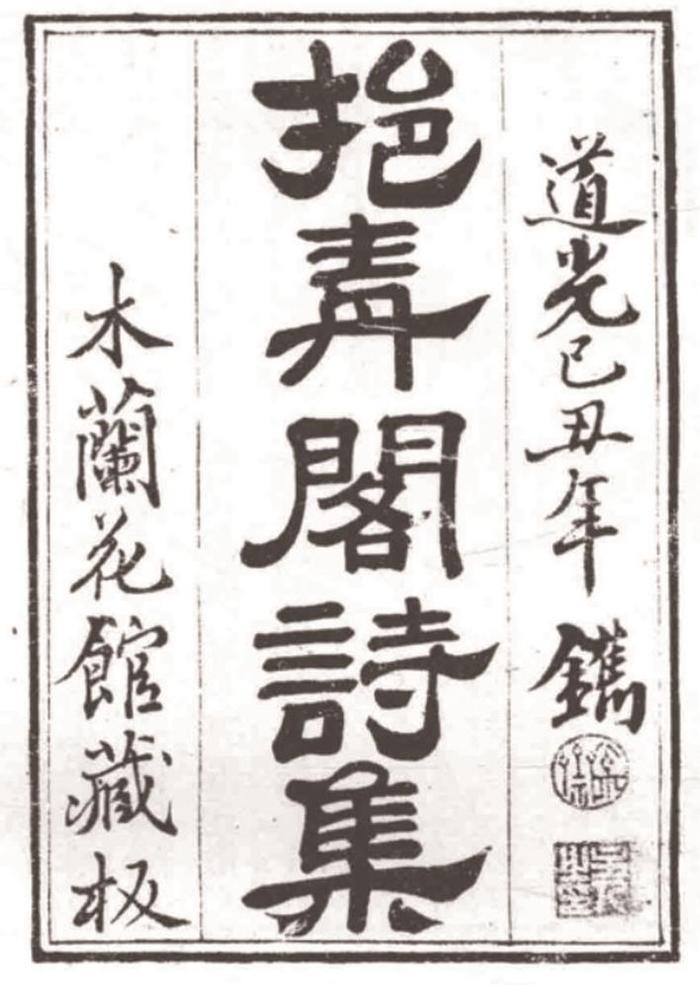 道光己丑年鐫
挹青閣詩集
木蘭花館藏板